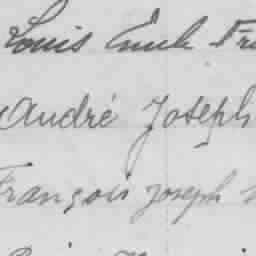 Louis Emile Fr
André Joseph
François Joseph